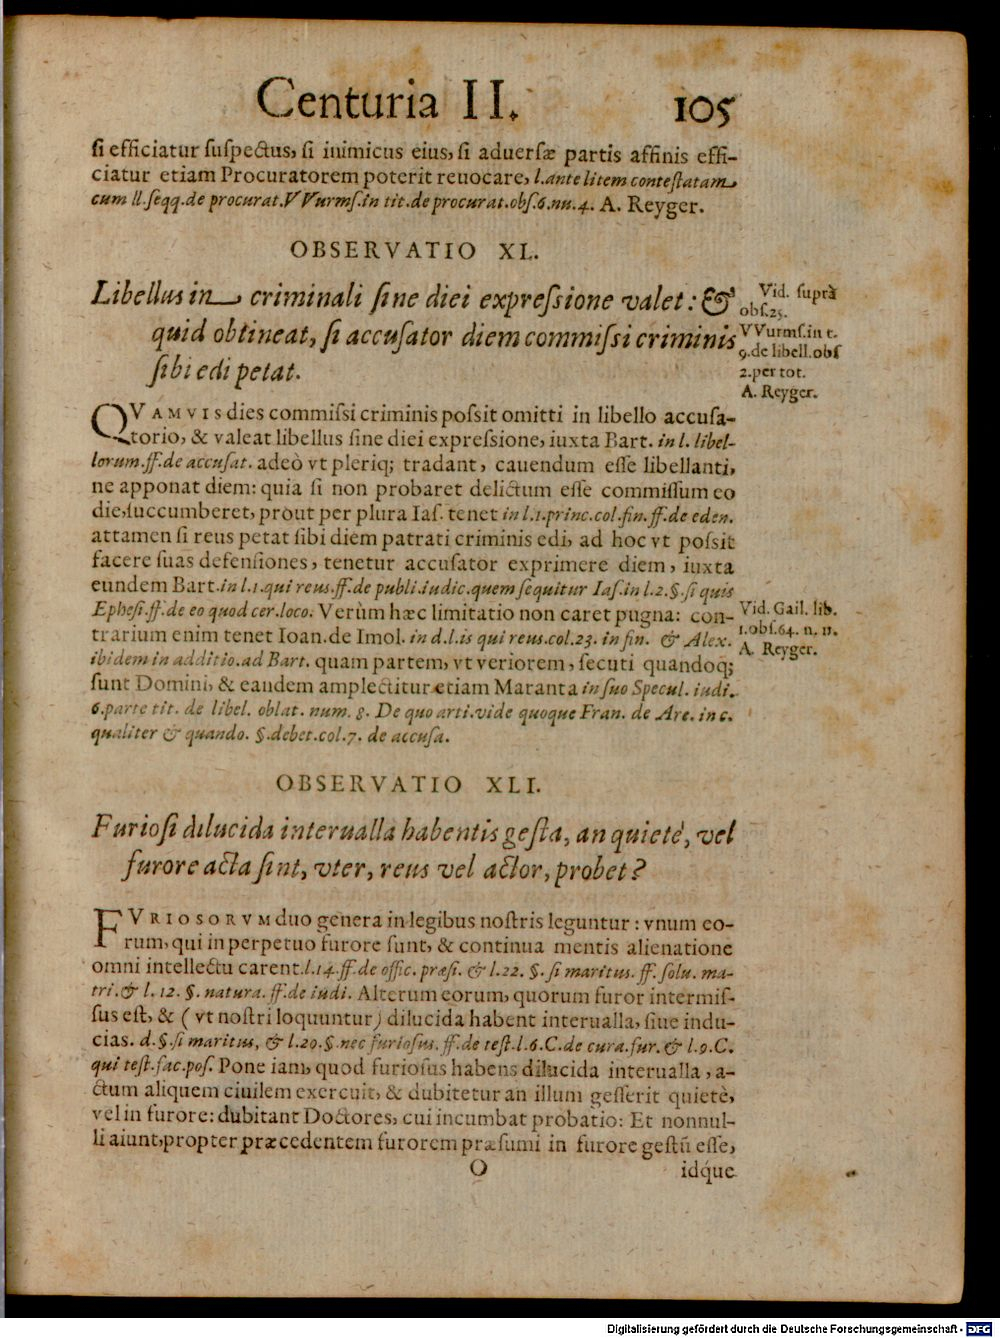 Centuria II. 105
si efficiatur suspectus, si inimicus eius, si aduersæ partis affinis effi-
ciatur etiam Procuratorem poterit reuocare, l. ante litem contestatam
cum ll. seqq. de procurat. VVurms. in tit. de procurat. obs. 6. nu. 4. A. Reyger.
OBSERVATIO XL.
Libellus in criminali sine diei expressione valet: &
quid obtineat, si accusator diem commissi criminis
sibi edi petat.
Vid. suprà
obs. 25.
VVurms. in t.
9. de libell. obs
2. per tot.
A. Reyger.
QVAMVIS dies commissi criminis possit omitti in libello accusa-
torio, & valeat libellus sine diei expressione, iuxta Bart. in l. libel-
lorum. ff. de accusat. adeò vt pleriq; tradant, cauendum esse libellanti,
ne apponat diem: quia si non probaret delictum esse commissum eo
die, succumberet, prout per plura Ias. tenet in l. 1. princ. col. fin. ff. de eden.
attamen si reus petat sibi diem patrati criminis edi, ad hoc vt possit
facere suas defensiones, tenetur accusator exprimere diem, iuxta
eundem Bart. in l. 1. qui reus. ff. de publi. iudic. quem sequitur Ias. in l. 2. §. si quis
Ephesi. ff. de eo quod cer. loco. Verùm hæc limitatio non caret pugna: con-
trarium enim tenet Ioan. de Imol. in d. l. is qui reus. col. 23. in fin. & Alex.
ibidem in additio. ad Bart. quam partem, vt veriorem, secuti quandoq;
sunt Domini, & eandem amplectitur etiam Maranta in suo Specul. iudi.
6. parte tit. de libel. oblat. num. 8. De quo arti. vide quoque Fran. de Are. in c.
qualiter & quando. §. debet. col. 7. de accusa.
Vid. Gail. lib.
1. obs. 64. n. 11.
A. Reyger.
OBSERVATIO XLI.
Furiosi dilucida interualla habentis gesta, an quietè, vel
furore acta sint, vter, reus vel actor, probet?
FVRIOSORVM duo genera in legibus nostris leguntur: vnum eo-
rum, qui in perpetuo furore sunt, & continua mentis alienatione
omni intellectu carent. l. 14. ff. de offic. præsi. & l. 22. §. si maritus. ff. solu. ma-
tri. & l. 12. §. natura. ff. de iudi. Alterum eorum, quorum furor intermis-
sus est, & (vt nostri loquuntur) dilucida habent interualla, siue indu-
cias. d. §. si maritus, & l. 20. §. nec furiosus. ff. de test. l. 6. C. de cura. fur. & l. 9. C.
qui test. fac. pos. Pone iam, quod furiosus habens dilucida interualla, a-
ctum aliquem ciuilem exercuit, & dubitetur an illum gesserit quietè,
vel in furore: dubitant Doctores, cui incumbat probatio: Et nonnul-
li aiunt, propter præcedentem furorem præsumi in furore gestū esse,
O idq́ue
Digitalisierung gefördert durch die Deutsche Forschungsgemeinschaft - DFG